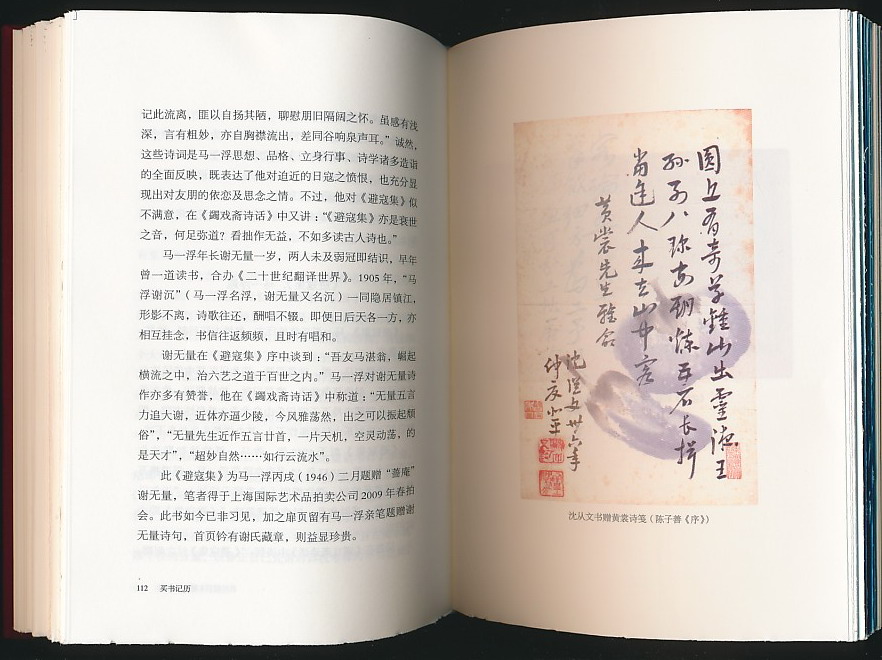 记此流离，匪以自扬其陋，聊慰朋旧隔阔之怀。虽感有浅
深，言有粗妙，亦自胸襟流出，差同谷响泉声耳。”诚然，
这些诗词是马一浮思想、品格、立身行事、诗学诸多造诣
的全面反映，既表达了他对迫近的日寇之愤恨，也充分显
现出对友朋的依恋及思念之情。不过，他对《避寇集》似
不满意，在《蠲戏斋诗话》中又讲：“《避寇集》亦是衰世
之音，何足弥道？看拙作无益，不如多读古人诗也。”
马一浮年长谢无量一岁，两人未及弱冠即结识，早年
曾一道读书，合办《二十世纪翻译世界》。1905 年，“马
浮谢沉”（马一浮名浮，谢无量又名沉）一同隐居镇江，
形影不离，诗歌往还，酬唱不辍。即便日后天各一方，亦
相互挂念，书信往返频频，且时有唱和。
谢无量在《避寇集》序中谈到：“吾友马湛翁，崛起
横流之中，治六艺之道于百世之内。”马一浮对谢无量诗
作亦多有赞誉，他在《蠲戏斋诗话》中称道：“无量五言
力追大谢，近体亦逼少陵，今风雅荡然，出之可以振起颓
俗”，“无量先生近作五言廿首，一片天机，空灵动荡，的
是天才”，“超妙自然……如行云流水”。
此《避寇集》为马一浮丙戌（1946）二月题赠“啬庵”
谢无量，笔者得于上海国际艺术品拍卖公司 2009 年春拍
会。此书如今已非习见，加之扉页留有马一浮亲笔题赠谢
无量诗句，首页钤有谢氏藏章，则益显珍贵。
112 买书记历
山出灵液王
孙子八珍
玉石长揖
当途人来去山中客
黄裳先生雅命
沈从文卅六年
仲夏北平
沈从文书赠黄裳诗笺（陈子善《序》）